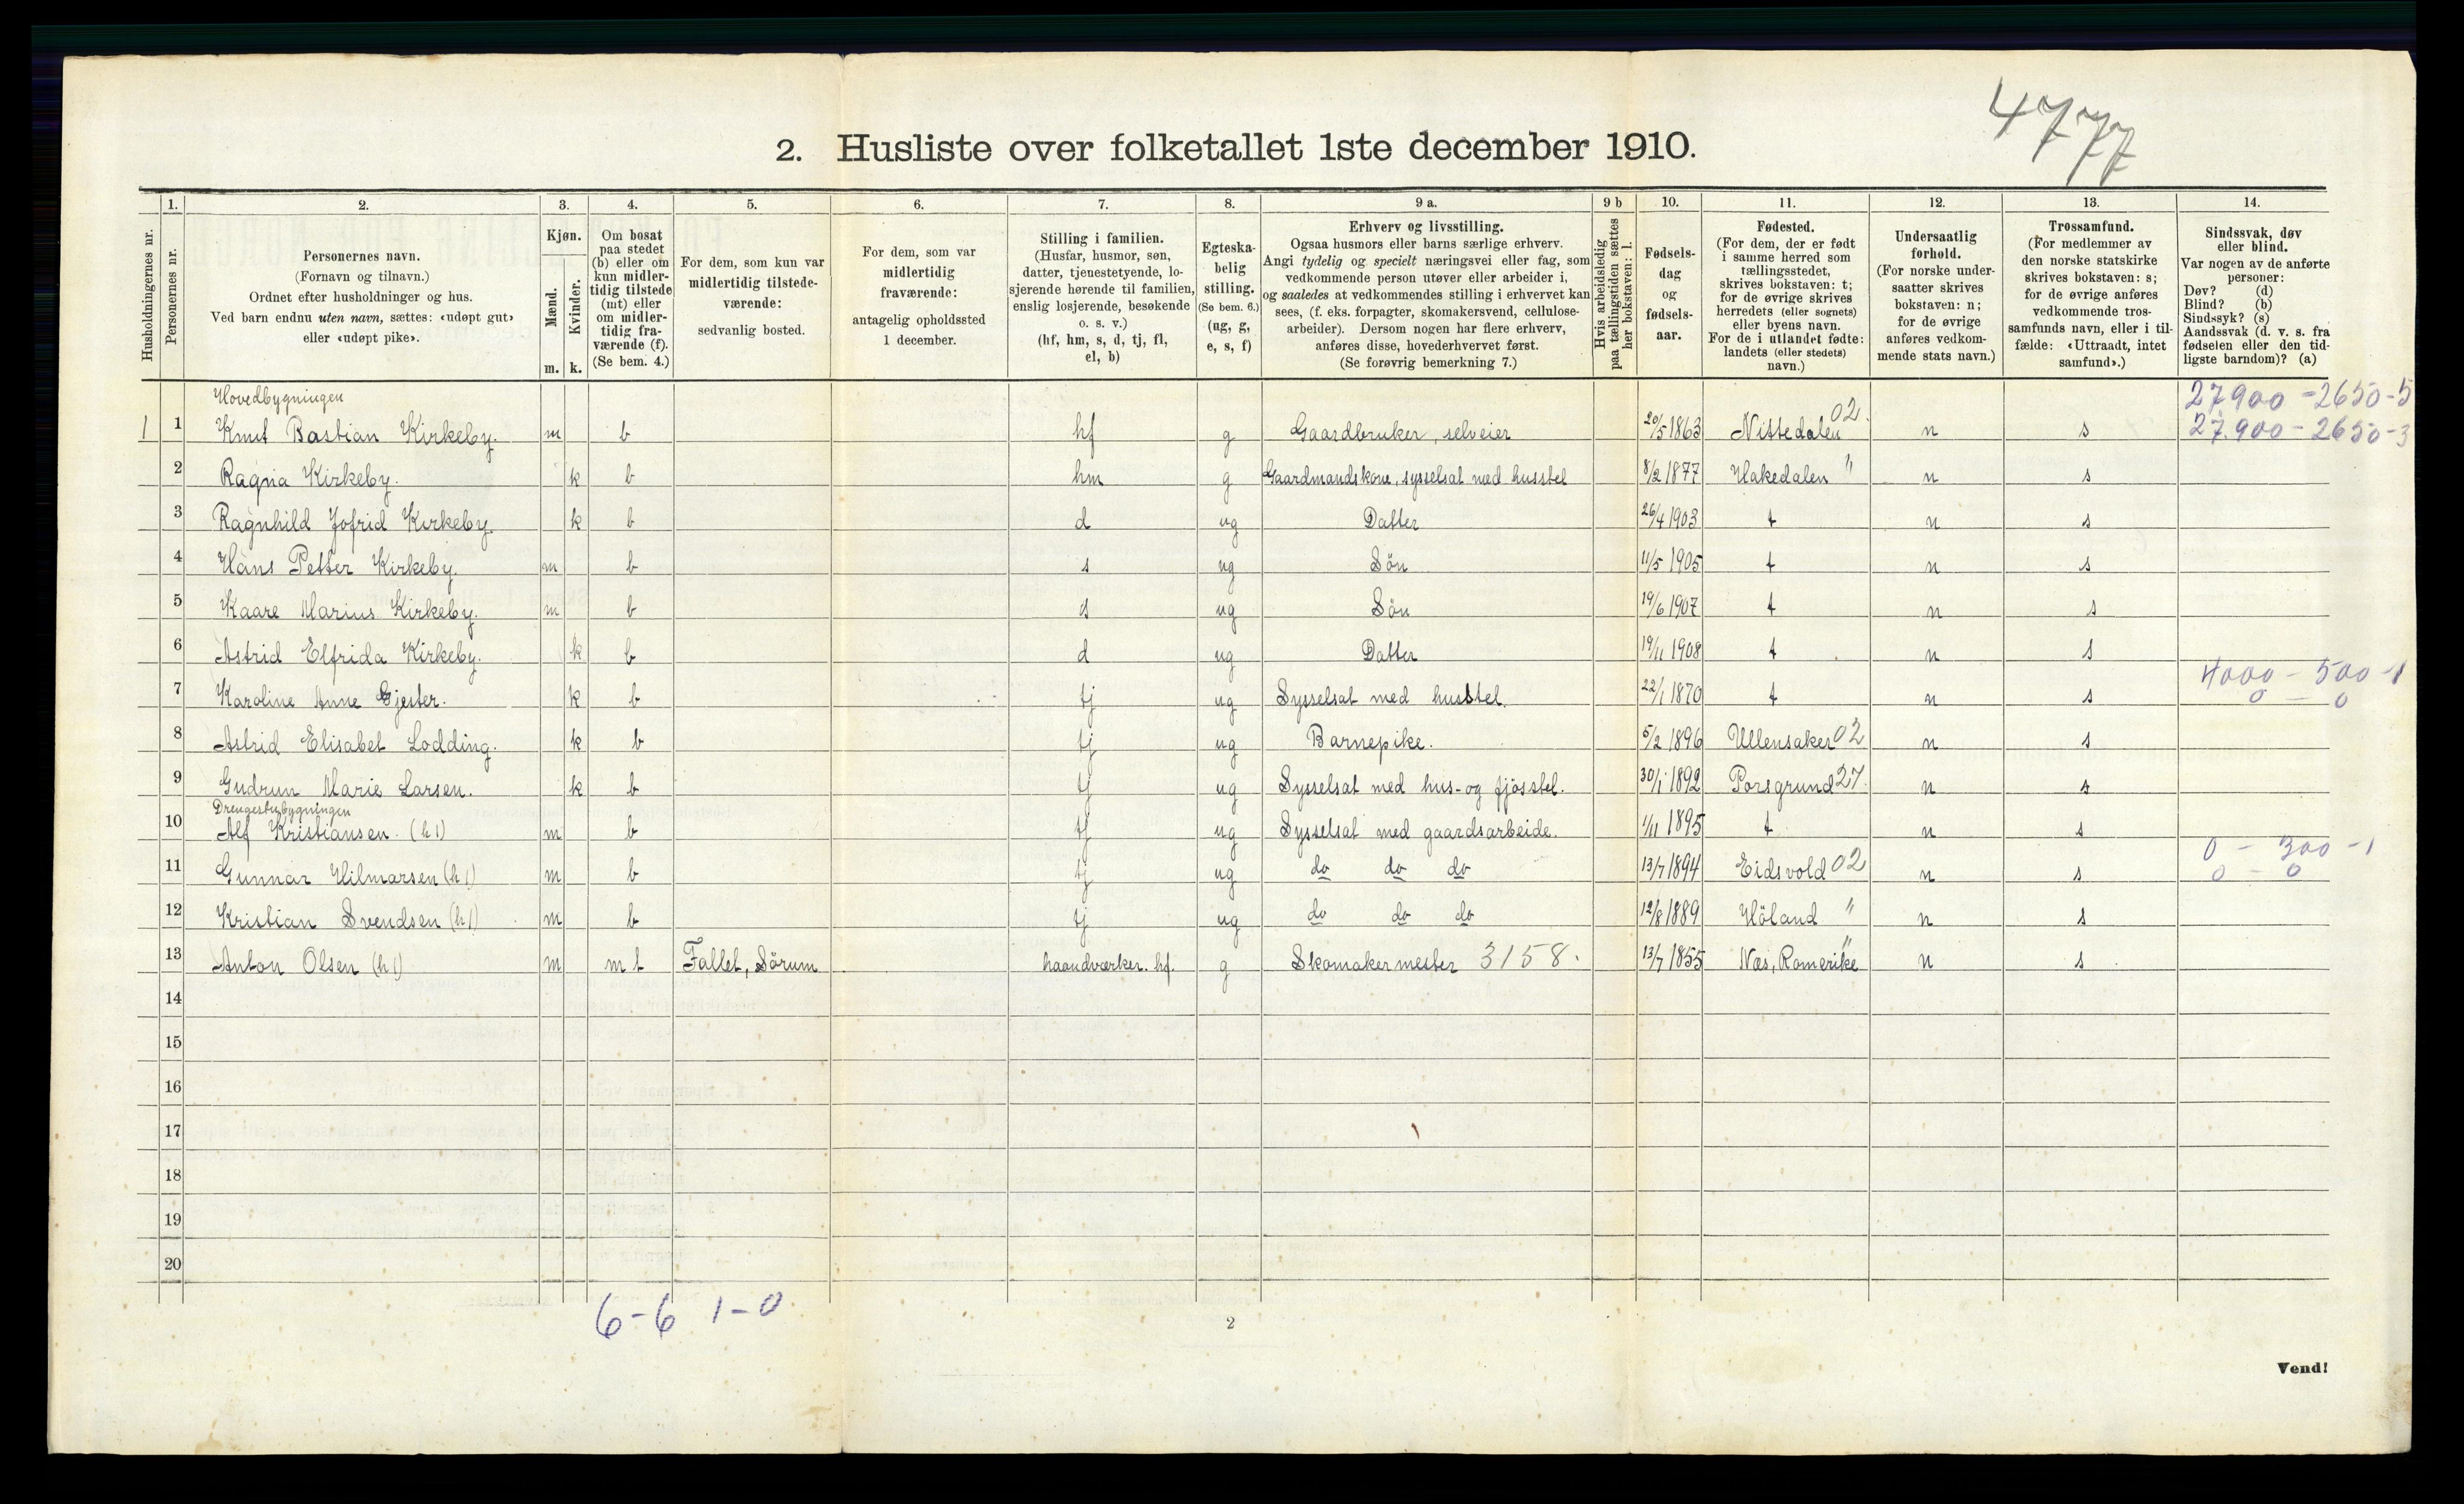 4777
2. Husliste over folketallet 1ste december 1910.
Husholdningernes nr.
1. Personernes nr.
2. Personernes navn.
(Fornavn og tilnavn.)
Ordnet efter husholdninger og hus.
Ved barn endnu uten navn, sættes: «udøpt gut»
eller «udøpt pike».
3. Kjøn.
Mænd. m.
Kvinder. k.
4. Om bosat
paa stedet
(b) eller om
kun midler-
tidig tilstede
(mt) eller
om midler-
tidig fra-
værende (f).
(Se bem. 4.)
5. For dem, som kun var
midlertidig tilstede-
værende:
sedvanlig bosted.
6. For dem, som var
midlertidig
fraværende:
antagelig opholdssted
1 december.
7. Stilling i familien.
(Husfar, husmor, søn,
datter, tjenestetyende, lo-
sjerende hørende til familien,
enslig losjerende, besøkende
o. s. v.)
(hf, hm, s, d, tj, fl,
el, b)
8. Egteska-
belig
stilling.
(Se bem. 6.)
(ug, g,
e, s, f)
9 a. Erhverv og livsstilling.
Ogsaa husmors eller barns særlige erhverv.
Angi tydelig og specielt næringsvei eller fag, som
vedkommende person utøver eller arbeider i,
og saaledes at vedkommendes stilling i erhvervet kan
sees, (f. eks. forpagter, skomakersvend, cellulose-
arbeider). Dersom nogen har flere erhverv,
anføres disse, hovederhvervet først.
(Se forøvrig bemerkning 7.)
9 b Hvis arbeidsledig
paa tællingstiden sættes
her bokstaven: l.
10. Fødsels-
dag
og
fødsels-
aar.
11. Fødested.
(For dem, der er født
i samme herred som
tællingsstedet,
skrives bokstaven: t;
for de øvrige skrives
herredets (eller sognets)
eller byens navn.
For de i utlandet fødte:
landets (eller stedets)
navn.)
12. Undersaatlig
forhold.
(For norske under-
saatter skrives
bokstaven: n;
for de øvrige
anføres vedkom-
mende stats navn.)
13. Trossamfund.
(For medlemmer av
den norske statskirke
skrives bokstaven: s;
for de øvrige anføres
vedkommende tros-
samfunds navn, eller i til-
fælde: «Uttraadt, intet
samfund».)
14. Sindssvak, døv
eller blind.
Var nogen av de anførte
personer:
Døv? (d)
Blind? (b)
Sindssyk? (s)
Aandssvak (d. v. s. fra
fødselen eller den tid-
ligste barndom)? (a)
Hovedbygningen 27900 - 2650 - 5
1 1 Knut Bastian Kirkeby. m b hf g Gaardbruker, selveier 20/5 1863 Nittedalen 02. n s 27.900 - 2650 - 3
2 Ragna Kirkeby. k b hm g Gaardmandskone, sysselsat med husstel 8/2 1877 Hakedalen " n s
3 Ragnhild Jofrid Kirkeby k b d ug Datter 26/4 1903 t n s
4 Hans Petter Kirkeby. m b s ug Sön 11/5 1905 t n s
5 Kaare Marius Kirkeby. m b s ug Sön 19/6 1907 t n s
6 Astrid Elfrida Kirkeby. k b d ug Datter 19/11 1908 t n s
4000 - 500 - 1
7 Karoline Anne Gjester. k b tj ug Sysselsat med husstel. 22/1 1870 t n s 0 - 0
8 Astrid Elisabet Lodding. k b tj ug Barnepike. 5/2 1896 Ullensaker 02 n s
9 Gudrun Marie Larsen. k b tj ug Sysselsat med hus- og fjösstel. 30/1 1892 Porsgrund 27. n s
Drengestubygningen
10 Alf Kristiansen. (h1) m b tj ug Sysselsat med gaardsarbeide. 1/11 1895 t n s
0 - 300 - 1
11 Gunnar Hilmarsen (h1) m b tj ug do do do 13/7 1894 Eidsvold 02 n s 0 - 0
12 Kristian Svendsen (h1) m b tj ug do do do 12/8 1889 Höland " n s
13 Anton Olsen (h1) m mt Fallet, Sörum haandværker. hf. g Skomakermester 3158. 13/7 1855 Næs, Romerike " n s
14
15
16
17
18
19
20
6-6 1-0
2
Vend!